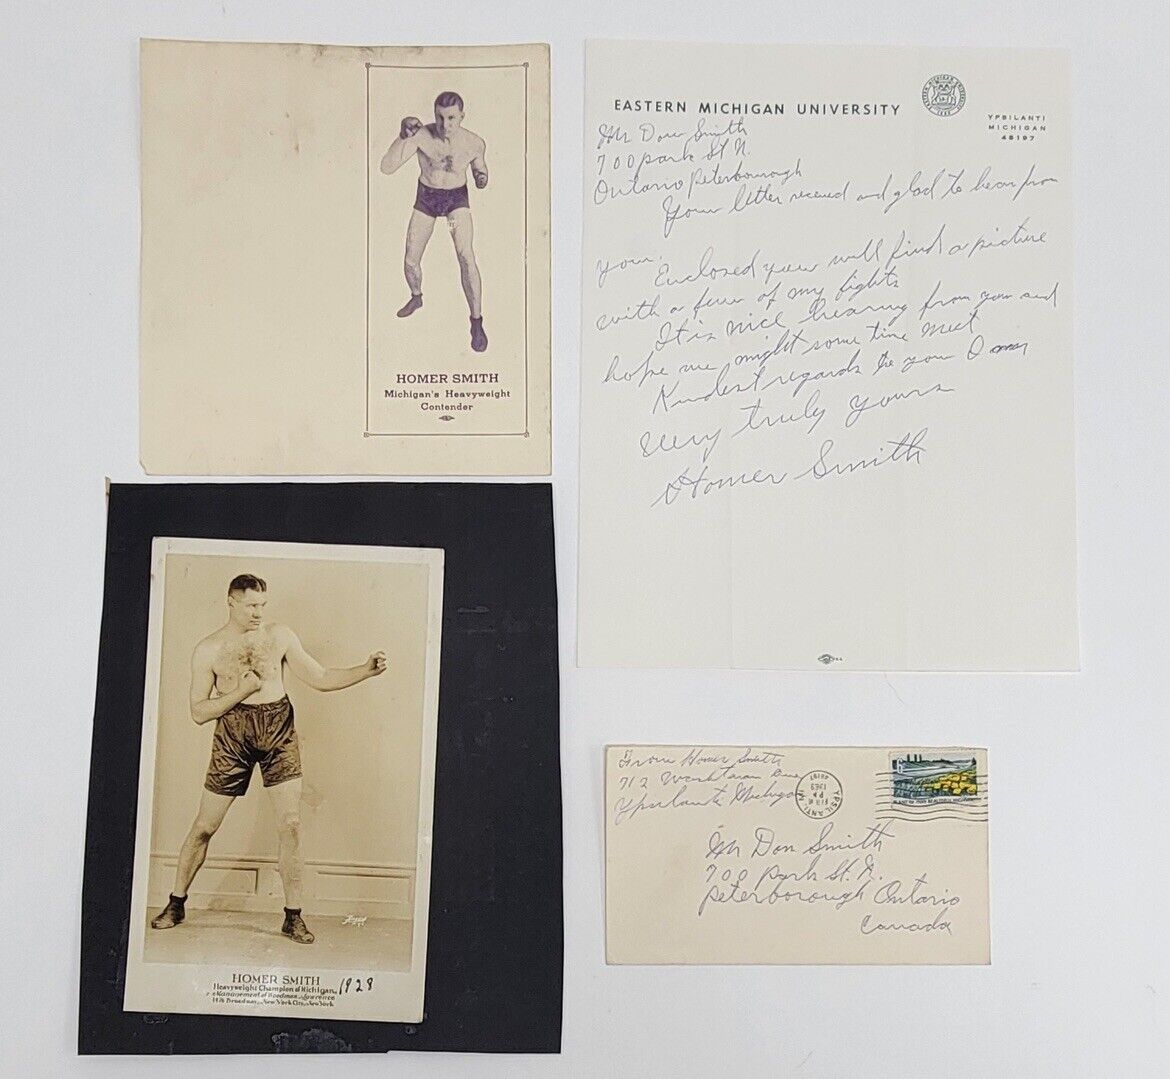 HOMER SMITH
Michigan's Heavyweight
Contender
EASTERN MICHIGAN UNIVERSITY
YPSILANTI
MICHIGAN
48197
Mr Don Smith
700 park St N.
Ontario Peterborough
Your letter received and glad to hear from
you.
Enclosed you will find a picture
with a few of my fights
It is nice hearing from you and
hope we might some time meet
Kindest regards to you
Very truly yours
Homer Smith
HOMER SMITH
Heavyweight Champion of Michigan
Management of Woodman Lawrence
1476 Broadway New York City New York
1928
From Homer Smith
712 Washtenaw Ave
Ypsilanti Michigan
YPSILANTI, MI
PM
FEB
1969
48197
PLANT for more BEAUTIFUL HIGHWAYS
Mr Don Smith
700 park St. N.
Peterborough Ontario
Canada